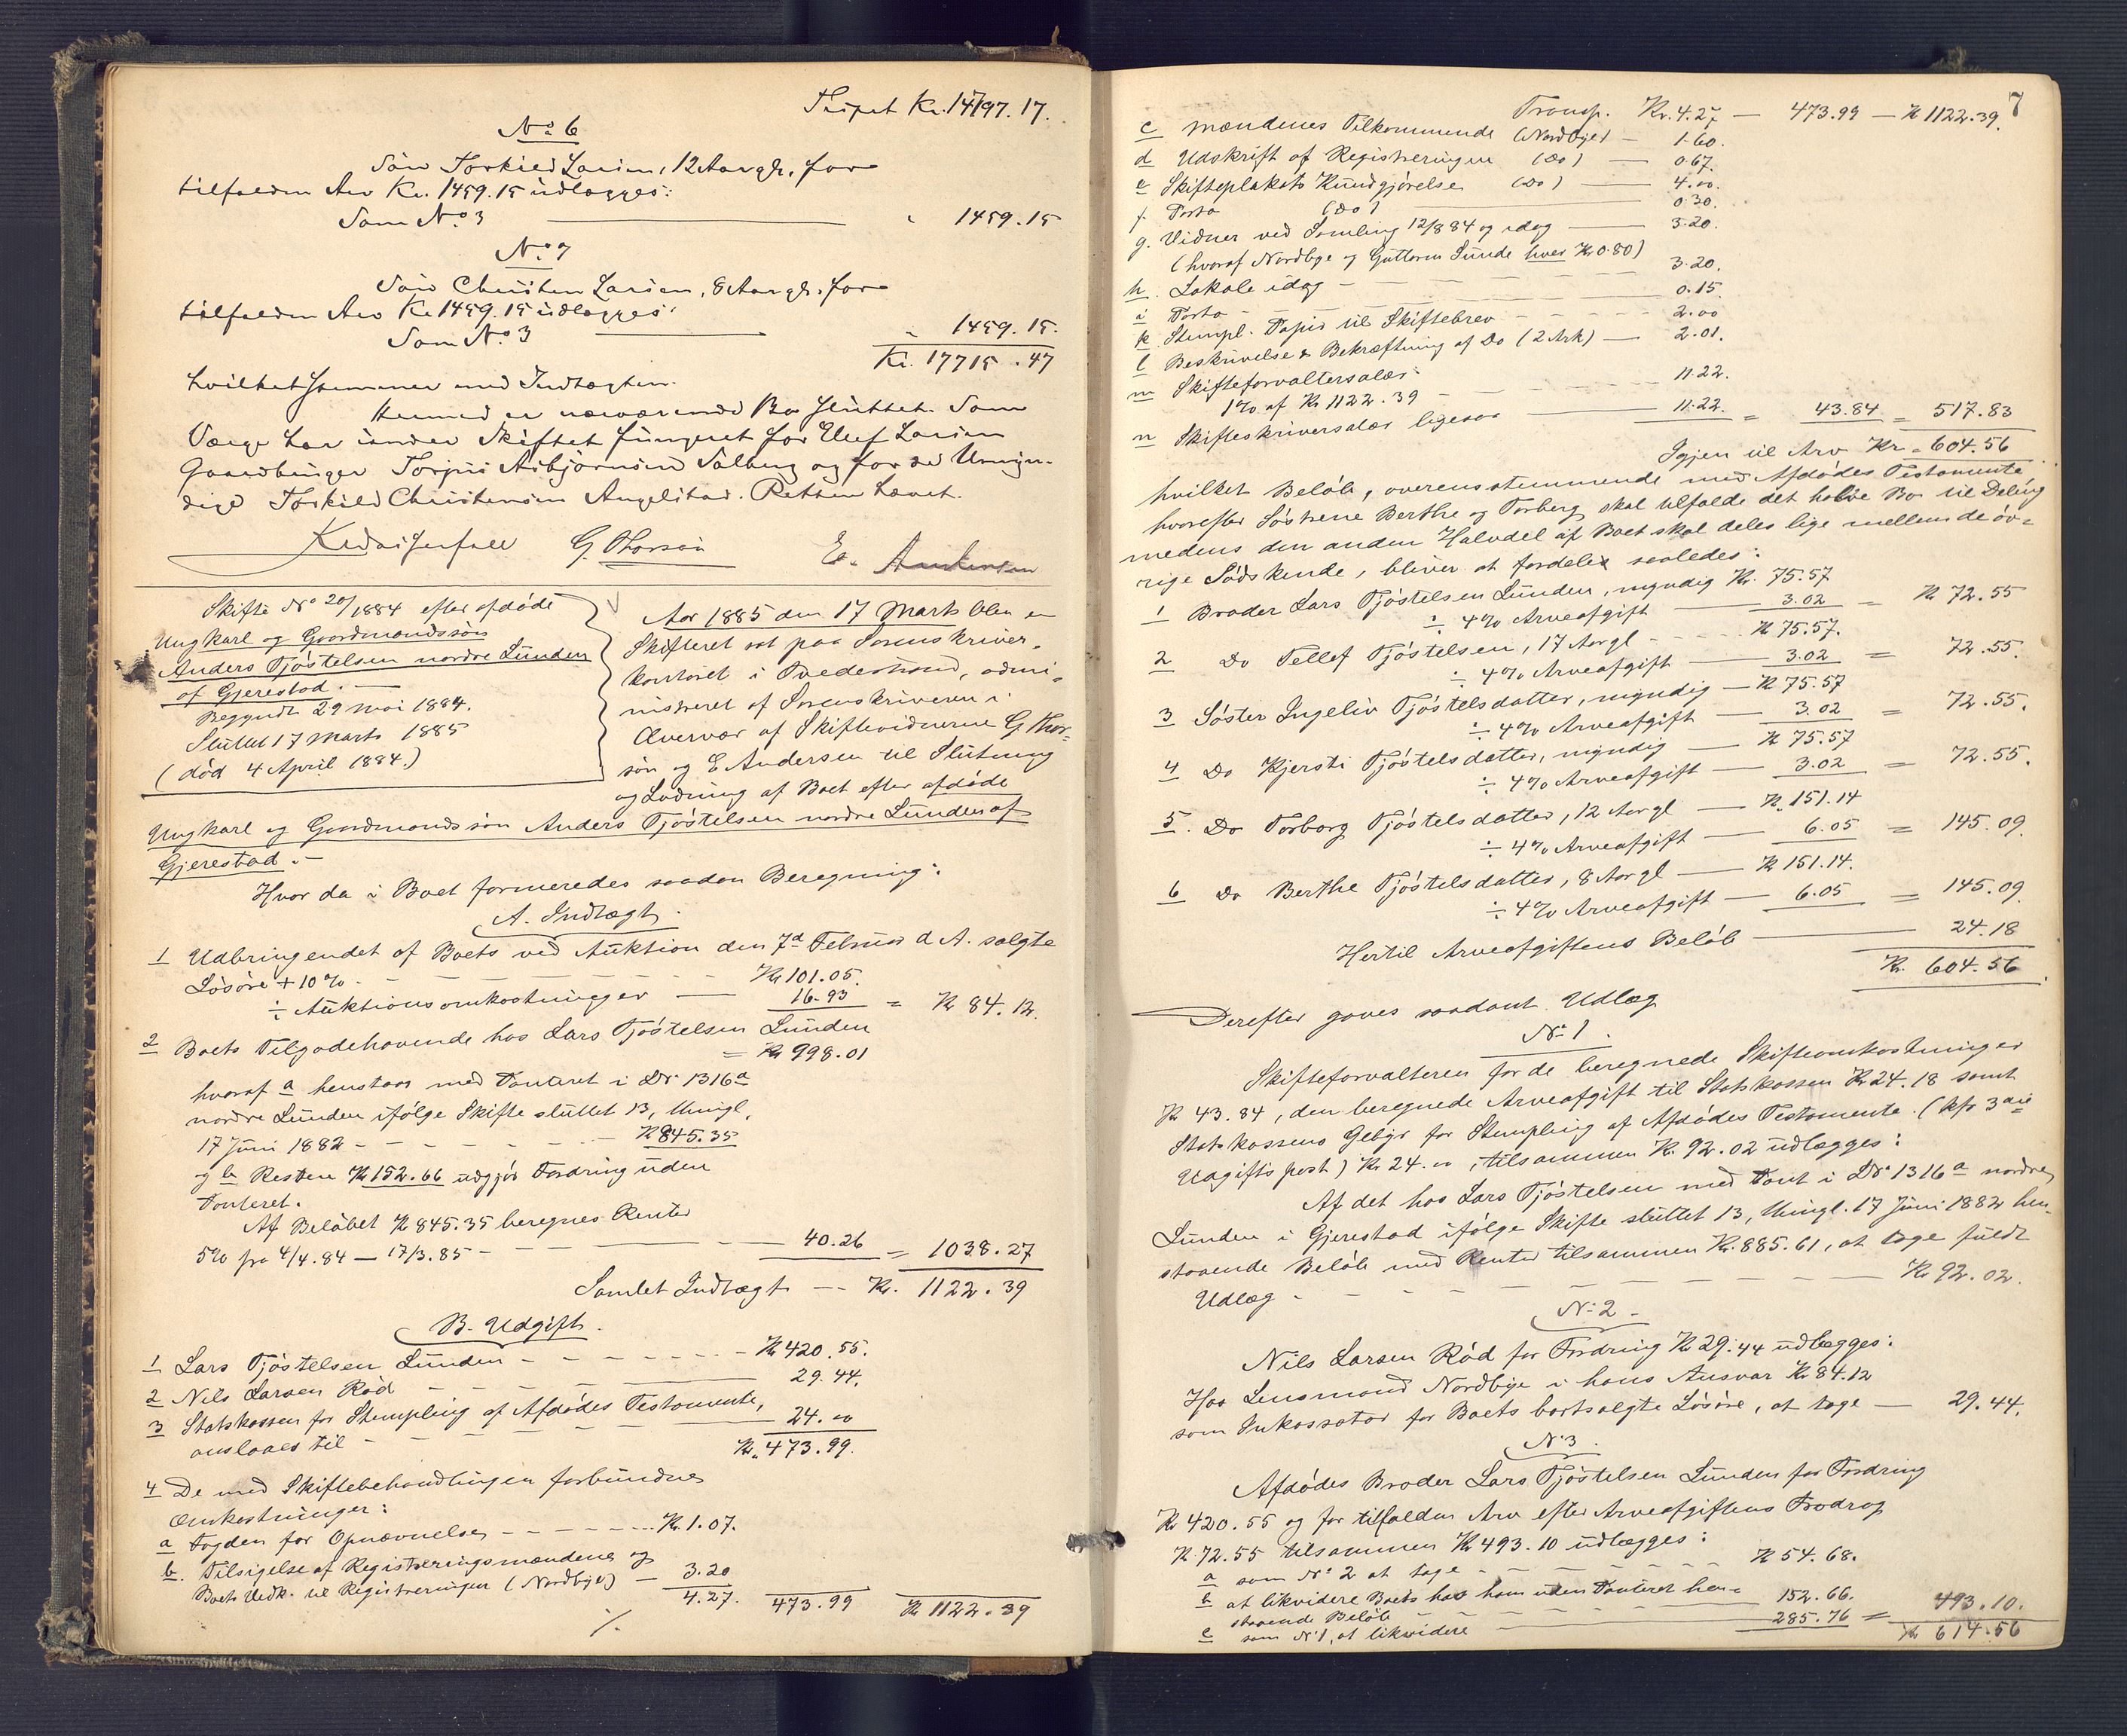 Kr. 14797.17.
No 6
Søn Torkild Larsen, 12 Aar gl. for
tilfalden Arv Kr. 1459.15 udlægges:
Som No 3 — " 1459.15
No 7
Søn Christen Larsen, 8 Aar gl. for
tilfalden Arv Kr 1459.15 udlægges:
Som No 3 — " 1459.15.
Kr. 17715.47
hvilket stemmer med Indtægten.
Hermed er nærværende Bo sluttet. Som
Værge har under Skiftet fungeret for Elef Larsen
Gaardbruger Torjus Asbjørnsen Solberg og for de Umyn-
dige Torkild Christensen Angelstad. Retten hævet.
G. Thorsøn E. Andersen
Skifte No 20/1884 efter afdøde
Ungkarl og Gaardmandssøn
Anders Tjøstelsen nordre Lunden
af Gjerestad. —
Begyndt 29 Mai 1884.
Sluttet 17 Marts 1885
(død 4 April 1884.)
Aar 1885 den 17 Marts blev en
Skifteret sat paa Sorenskriver-
kontoret i Tvedestrand, admi-
nistreret af Sorenskriveren i
Overvær af Skiftevidnerne G. Thor-
søn og E Andersen til Slutning
og Lodning af Boet efter afdøde
Ungkarl og Gaardmandssøn Anders Tjøstelsen nordre Lunden af
Gjerestad. —
Hvor da i Boet formeredes saadan Beregning:
A. Indtægt.
1 Udbringendet af Boets ved Auktion den 7d Februar d. A. solgte
Løsøre + 10% - Kr 101.05.
÷ Auktionsomkostninger — 16.93 = Kr 84.12.
2 Boets Tilgodehavende hos Lars Tjøstelsen Lunden
= Kr 998.01
hvoraf a henstaar med Panteret i Lr 1316a
nordre Lunden ifølge Skifte sluttet 13, thingl.
17 Juni 1882 - Kr 845.35
og b Resten Kr 152.66 udgjør Fordring uden
Panteret.
Af Beløbet Kr 845.35 beregnes Renter
5% fra 4/4.84 — 17/3.85 - 40.26 = 1038.27
Samlet Indtægt — Kr. 1122.39
B. Udgift.
1 Lars Tjøstelsen Lunden - Kr 420.55.
2 Nils Larsen Rød — 29.44.
3 Statskassen for Stempling af Afdødes Testamente,
anslaaes til - 24.00
Kr. 473.99.
4 De med Skiftebehandlingen forbundne
Omkostninger:
a Fogden for Opnævnelse - Kr. 1.07.
b. Tilsigelse af Registreringsmændene og
Boets Vedk. til Registreringen (Nordbye) — 3.20
4.27. 473.99 Kr 1122.39
./.
7
Transp. Kr. 4.27 — 473.99 — Kr 1122.39.
c mændenes Tilkommende (Nordbye) — 1.60.
d Udskrift af Registreringen (Do) — 0.67.
e Skifteplakats Kundgjørelse (Do) — 4.00.
f. Porto (Do) — 0.30.
g. Vidner ved Samling 12/8 84 og idag — 3.20.
(hvoraf Nordbye og Guttorm Lunde hver Kr 0.80)
h. Lokale idag - 3.20.
i Porto - 0.15.
k. Stempl. Papir til Skiftebrev - 2.00
l Beskrivelse & Bekræftning af Do (2 Ark) — 2.01.
m Skifteforvaltersalær:
1% af Kr 1122.39 - 11.22.
n Skifteskriversalær ligesaa — 11.22. = 43.84 = 517.83
Igjen til Arv Kr. 604.56
hvilket Beløb, overensstemmende med Afdødes Testamente
hvorefter Søstrene Berthe og Torberg skal tilfalde det halve Bo til Deling
medens den anden Halvdel af Boet skal deles lige mellem de øv-
rige Sødskende, bliver at fordele saaledes:
1 Broder Lars Tjøstelsen Lunden, myndig Kr. 75.57
÷ 4% Arveafgift — 3.02 = Kr 72.55
2 Do Tellef Tjøstelsen, 17 Aar gl - Kr 75.57.
÷ 4% Arveafgift — 3.02 = 72.55.
3 Søster Ingeliv Tjøstelsdatter, myndig — Kr 75.57
÷ 4% Arveafgift — 3.02 = 72.55.
4 Do Kjersti Tjøstelsdatter, myndig — Kr 75.57
÷ 4% Arveafgift — 3.02 = 72.55.
5. Do Torborg Tjøstelsdatter, 12 Aar gl — Kr. 151.14
÷ 4% Arveafgift — 6.05 = 145.09.
6 Do Berthe Tjøstelsdatter, 8 Aar gl — Kr 151.14.
÷ 4% Arveafgift — 6.05 = 145.09.
Hertil Arveafgiftens Beløb — 24.18
Kr. 604.56
Derefter gaves saadant Udlæg
No 1.
Skifteforvalteren for de beregnede Skifteomkostninger
Kr 43.84, den beregnede Arveafgift til Statskassen Kr 24.18 samt
Statskassens Gebyr for Stempling af Afdødes Testamente (kfr 3die
Udgiftspost) Kr 24.00, tilsammen Kr. 92.02 udlægges:
Af det hos Lars Tjøstelsen med Pant i Lr 1316a nordre
Lunden i Gjerestad ifølge Skifte sluttet 13, thingl. 17 Juni 1882 hen-
staaende Beløb med Renter tilsammen Kr. 885.61, at tage fuldt
Udlæg - Kr 92.02.
No 2.
Nils Larsen Rød for Fordring Kr 29.44 udlægges:
Hos Lensmand Nordbye i hans Ansvar Kr 84.12
som Inkassator for Boets bortsolgte Løsøre, at tage — 29.44.
No 3.
Afdødes Broder Lars Tjøstelsen Lunden for Fordring
Kr 420.55 og for tilfalden Arv efter Arveafgiftens Fradrag
Kr 72.55 tilsammen Kr 493.10 udlægges:
a som No 2 at tage - Kr 54.68.
b at likvidere Boets hos ham uden Panteret hen-
staaende Beløb — 152.66.
c som No 1, at likvidere — 285.76 = 493.10.
Kr 614.56